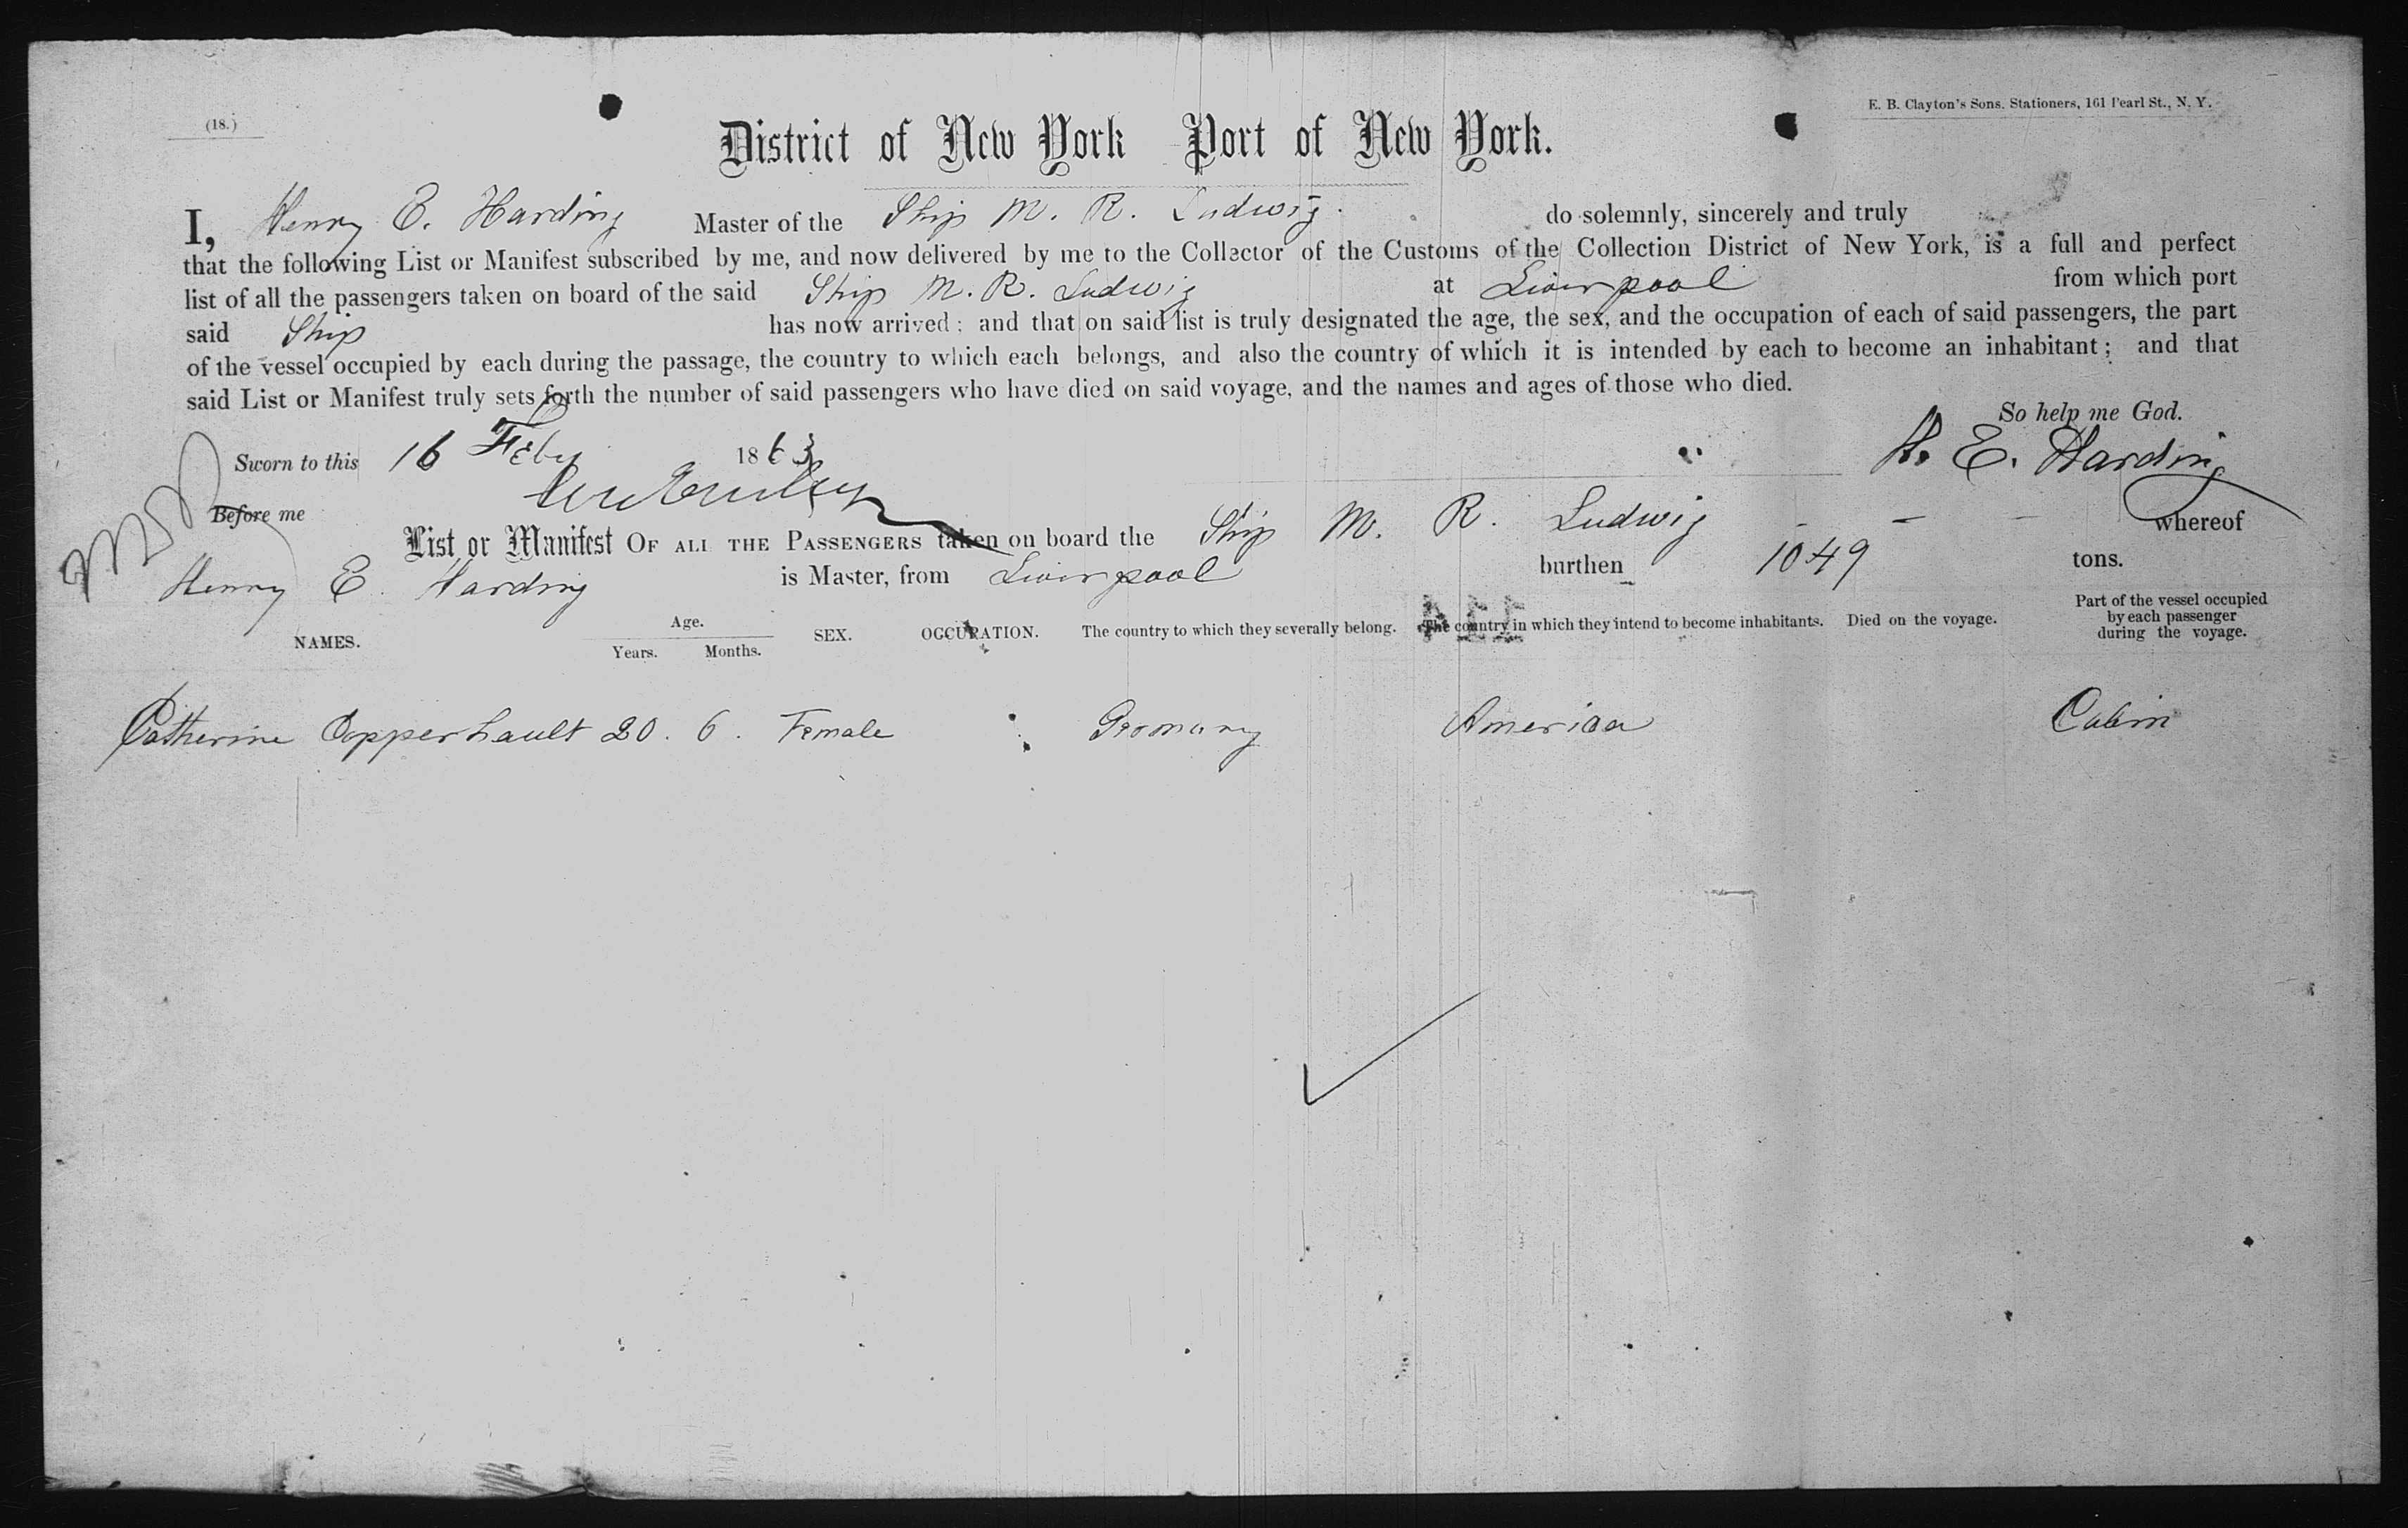 (18.)
E. B. Clayton's Sons. Stationers, 161 Pearl St., N. Y.
District of New York Port of New York.
I, Henry E. Harding Master of the Ship M. R. Ludwig do solemnly, sincerely and truly
that the following List or Manifest subscribed by me, and now delivered by me to the Collector of the Customs of the Collection District of New York, is a full and perfect
list of all the passengers taken on board of the said Ship M. R. Ludwig at Liverpool from which port
said Ship has now arrived: and that on said list is truly designated the age, the sex, and the occupation of each of said passengers, the part
of the vessel occupied by each during the passage, the country to which each belongs, and also the country of which it is intended by each to become an inhabitant; and that
said List or Manifest truly sets forth the number of said passengers who have died on said voyage, and the names and ages of those who died.
So help me God.
Sworn to this 16 Feby 1863 H. E. Harding
Before me
List or Manifest OF ALL THE PASSENGERS taken on board the Ship M. R. Ludwig - - - whereof
Henry E. Harding is Master, from Liverpool burthen 1049 tons.
NAMES. Age. Years. Months. SEX. OCCUPATION. The country to which they severally belong. The country in which they intend to become inhabitants. Died on the voyage. Part of the vessel occupied by each passenger during the voyage.
Catherine Copperhault 20. 6. Female Germany America Cabin